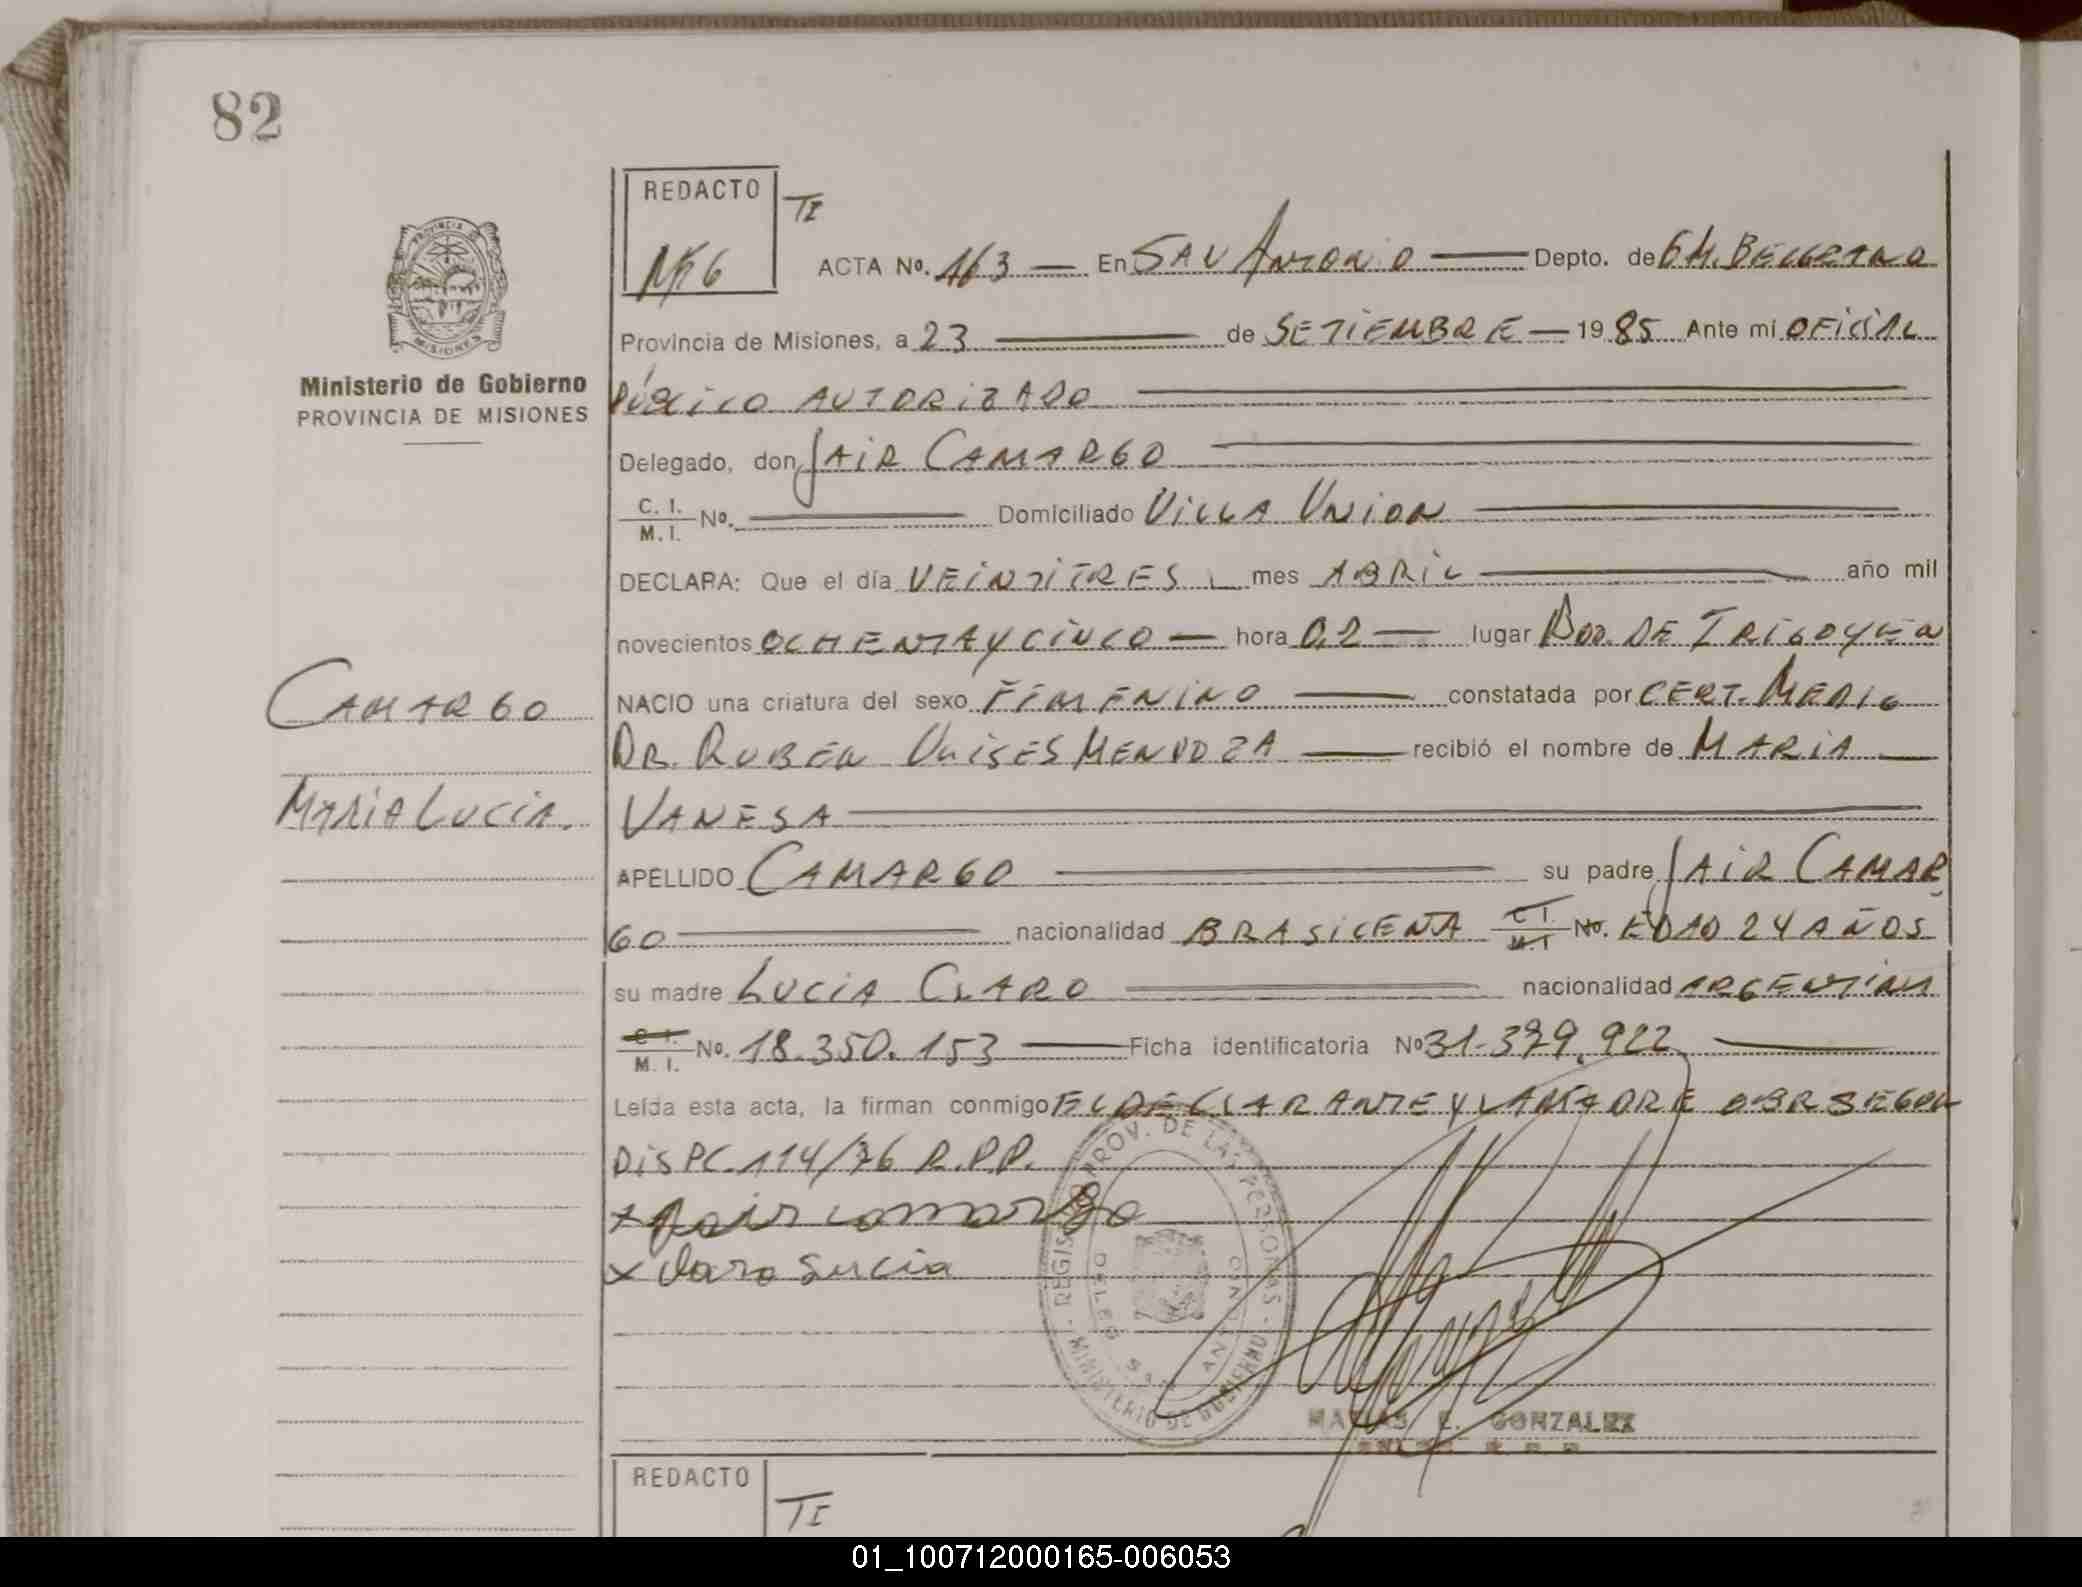 82
REDACTO
TI
ACTA No. 163 — En SAN ANTONIO — Depto. de GM. BELGRANO
PROVINCIA DE
MISIONES
Provincia de Misiones, a 23 — de SETIEMBRE — 19 85 Ante mi OFICIAL
Ministerio de Gobierno
PROVINCIA DE MISIONES
PÚBLICO AUTORIZADO —
Delegado, don JAIR CAMARGO —
C. I.
M. I. No. — Domiciliado VILLA UNION —
DECLARA: Que el día VEINTITRES mes ABRIL — año mil
novecientos OCHENTA Y CINCO — hora 0,2 — lugar BDO. DE IRIGOYEN
CAMARGO
NACIO una criatura del sexo FEMENINO — constatada por CERT. MEDIC
DR. RUBEN ULISES MENDOZA — recibió el nombre de MARIA —
MARIA LUCIA.
VANESA —
APELLIDO CAMARGO — su padre JAIR CAMAR
GO — nacionalidad BRASILEÑA C.I. M.I. No. EDAD 24 AÑOS
su madre LUCIA CLARO — nacionalidad ARGENTINA
C. I.
M. I. No. 18.350.153 — Ficha identificatoria No 31.379.922 —
Leída esta acta, la firman conmigo EL DECLARANTE Y LA MADRE OBR SEGUN
DISPC. 114/76 R.P.P.
x Jair Camargo
x Claro Lucia
REGISTRO PROV. DE LAS PERSONAS
MINISTERIO DE GOBIERNO
ANTONIO
MATIAS E. GONZALEZ
REDACTO
TI
01_100712000165-006053